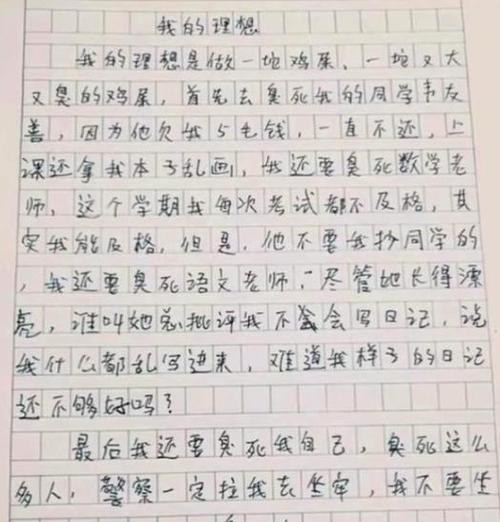 我的理想
我的理想是做一坨鸡屎、一坨又大
又臭的鸡屎，首先去臭死我的同学韦友
善，因为他欠我5毛钱，一直不还，上
课还拿我本子乱画，我还要臭死数学老
师，这个学期我每次考试都不及格，其
实我能及格，但是，他不要我抄同学的
，我还要臭死语文老师，尽管她长得漂
亮，谁叫她总批评我不会写日记，说
我什么都乱写进来，难道我样子的日记
还不够好吗？
最后我还要臭死我自己，臭死这么
多人，警察一定拉我去坐牢，我不要坐